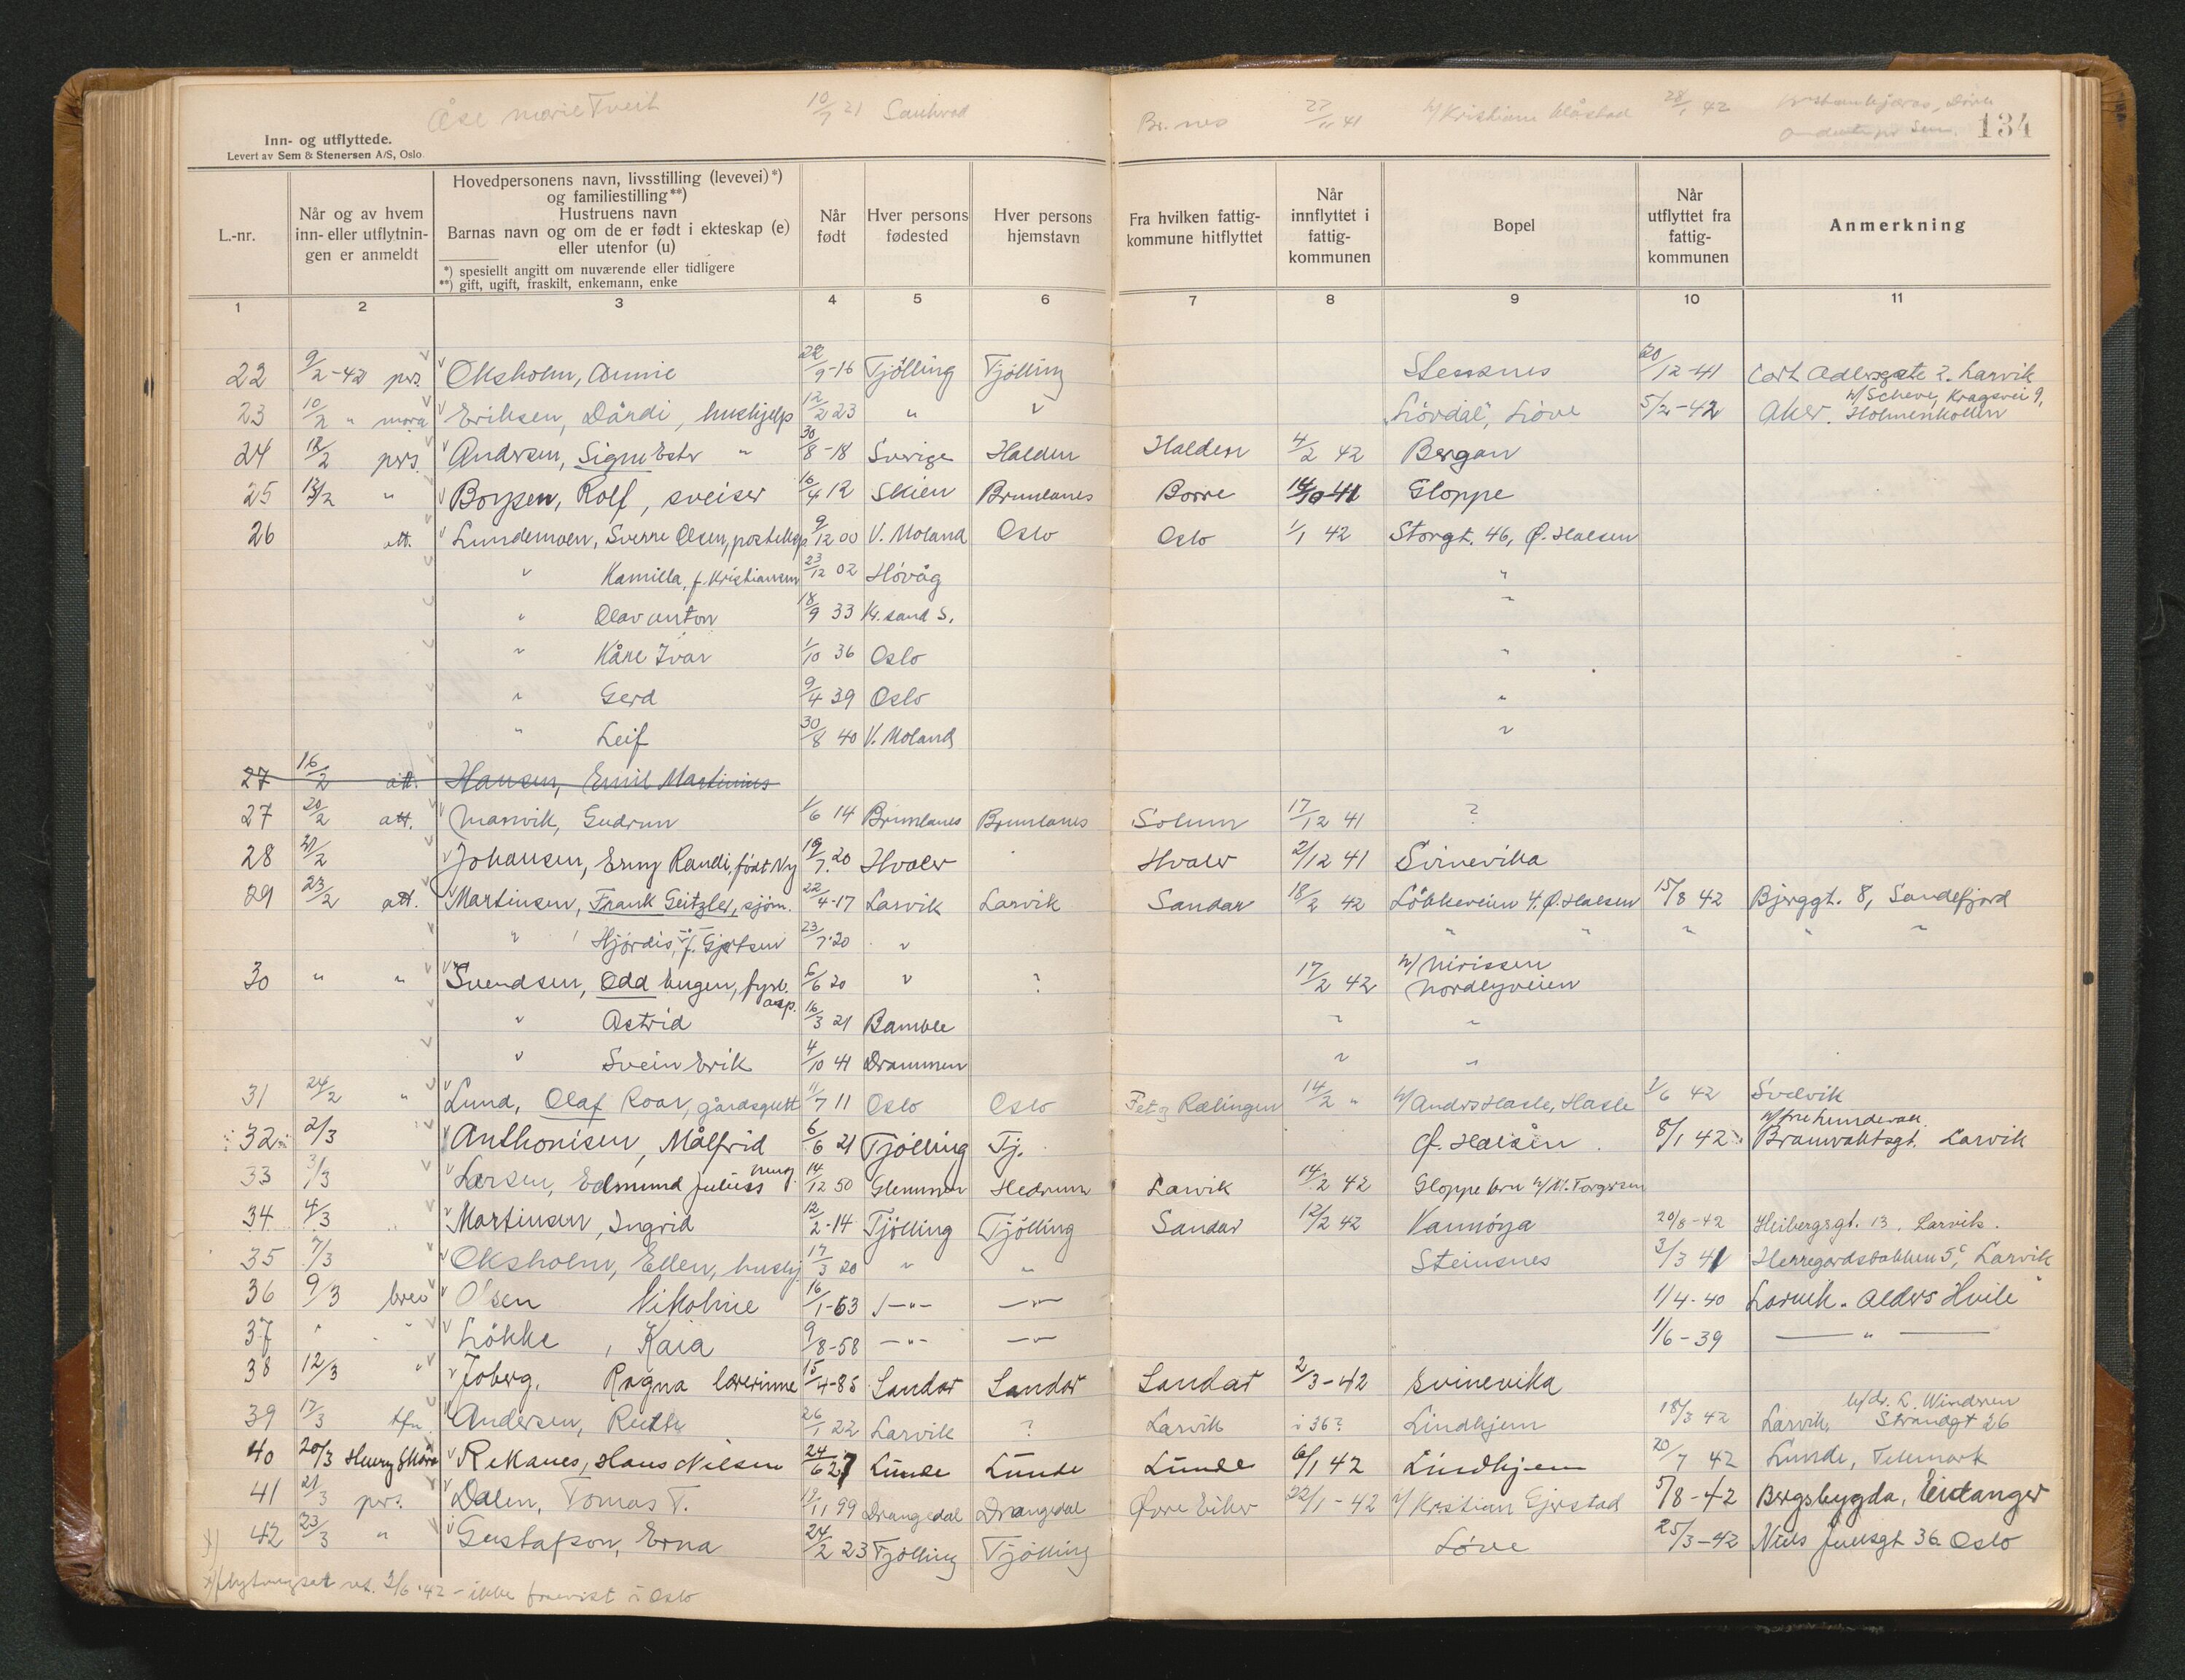 Åse Marie Tveit 10/7 21 Sauherad Br.nes 27/11 41 h/ Kristiane Klåstad 28/1 42
134
Inn- og utflyttede.
Levert av Sem & Stenersen A/S, Oslo
L.-nr.
Når og av hvem inn- eller utflytnin- gen er anmeldt
Hovedpersonens navn, livsstilling (levevei)*)
og familiestilling**)
Hustruens navn
Barnas navn og om de er født i ekteskap (e)
eller utenfor (u)
*) spesiellt angitt om nuværende eller tidligere
**) gift, ugift, fraskilt, enkemann, enke
Når født
Hver persons fødested
Hver persons hjemstavn
Fra hvilken fattig- kommune hitflyttet
Når innflyttet i fattig- kommunen
Bopel
Når utflyttet fra fattig- kommunen
Anmerkning
1 2 3 4 5 6 7 8 9 10 11
22 9/2-42 pers. Oksholm, Annie 22/9-16 Tjølling Tjølling Stensnes 20/12-41 Cort Adlersgate 2. Larvik
23 10/2 " mora Eriksen, Dårdi, hushjelp 12/2 23 " " Lövdal, Löve 5/2-42 Aker. h/ Scheve, Kragsvei 9, Holmenkollen
24 12/2 pers. Andersen, Signe Ester " 30/8-18 Sverige Halden Halden 4/2 42 Bergan
25 12/2 " Boysen, Rolf, sveiser 16/4 12 Skien Brunlanes Borre 14/10-41 Gloppe
26 att. Lundemoen, Sverre Olsen, posteksp 9/12 00 V. Moland Oslo Oslo 1/1 42 Storgt. 46, Ø. Halsen
" Kamilla, f. Kristiansen 23/12 02 Hövåg "
" Olav Anton 18/9 33 Kr.sand S. "
" Kåre Ivar 1/10 36 Oslo "
" Gerd 9/4 39 Oslo "
" Leif 30/8 40 V. Moland "
27 16/2 att. Hansen, Emil Martinius
27 20/2 att. Manvik, Gudrun 1/6 14 Brunlanes Brunlanes Solum 17/12 41 ?
28 21/2 Johansen, Erny Randi, født Ny 19/7.20 Hvaler " Hvaler 2/12 41 Svinevika
29 23/2 att. Martinsen, Frank Geitzler, sjøm. 22/4-17 Larvik Larvik Sandar 18/2 42 Lökkeveien 4, Ø. Halsen 15/8 42 Bjerggt. 8, Sandefjord
" Hjørdis, f. Gjertsen 23/7.20 " " " " " "
30 " " Svendsen, Odd Eugen, fyrb. asp. 6/6 20 " ? 17/2 42 h/ Nirissen Nordlyveien
" Astrid 16/3 21 Bamble " "
" Svein Erik 4/10 41 Drammen " "
31 24/2 " Lund, Olaf Roar, gårdsgutt 11/7 11 Oslo Oslo Fet og Rælingen 14/2 " h/ Anders Hasle, Hasle 1/6 42 Svelvik
32 2/3 Anthonisen, Målfrid 6/6 21 Tjölling Tj. Ø. Halsen 8/1 42 h/ fru Lundevall Brannvaktsgt. Larvik
33 3/3 Larsen, Edmund Julius 14/12 50 Glemmen Hedrum Larvik 14/2 42 Gloppe bru h/ M. Torgersen
34 4/3 Martinsen, Ingrid 12/2-14 Tjölling Tjölling Sandar 12/2 42 Vannöya 20/8-42 Heibergsgt. 13. Larvik.
35 7/3 Oksholm, Ellen, hushj. 17/3 20 " " Steinsnes 3/3 41 Herregårdsbakken 5c, Larvik
36 9/3 brev Olsen Nikoline 16/1-63 -"- -"- 1/4-40 Larvik. Alders Hvile
37 " " Lökke, Kaia 9/8-58 -"- -"- 1/6-39 — " —
38 12/3 " Joberg, Ragna lærerinne 15/4-85 Sandar Sandar Sandar 2/3-42 Svinevika
39 17/3 tfn. Andersen, Ruth 26/1 22 Larvik ? Larvik i 36? Lindhjem 18/3 42 Larvik, h/ dr. L. Windsren Strandgt 26
40 20/3 Henry Skåra Rekanes, Hans Nilsen 24/6 27 Lunde Lunde Lunde 6/1 42 Lindhjem 20/7 42 Lunde, Telemark
41 21/3 pers. Dalen, Tomas T. 19/11 99 Drangedal Drangedal Øvre Eiker 22/1-42 h/ Kristian Gjerstad 5/8-42 Bergsbygda, Eidanger
x) 42 23/3 " Gustafson, Erna 24/2 23 Tjölling Tjölling Löve 25/3-42 Niels Juelsgt 36 Oslo
x) flytningsat ret. 2/6.42 - ikke fremvist i Oslo